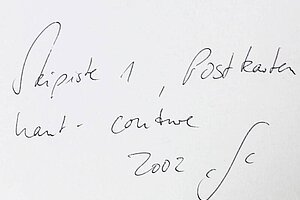 Skipiste 1, Postkarten
haut-couture
2002